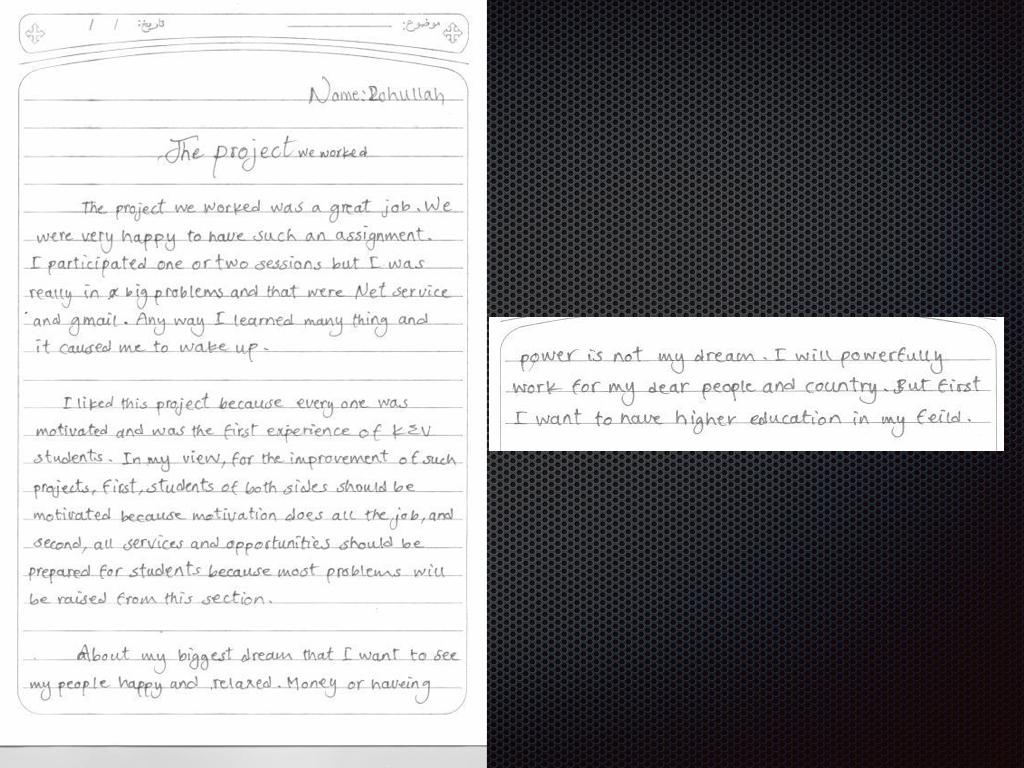 موضوع: تاریخ: / /
Name: Rohullah
The project we worked
The project we worked was a great job. We
were very happy to have such an assignment.
I participated one or two sessions but I was
really in big problems and that were Net service
and gmail. Any way I learned many thing and
it caused me to wake up.
I liked this project because every one was
motivated and was the first experience of KEU
students. In my view, for the improvement of such
projects, first, students of both sides should be
motivated because motivation does all the job, and
second, all services and opportunities should be
prepared for students because most problems will
be raised from this section.
About my biggest dream that I want to see
my people happy and relaxed. Money or haveing
power is not my dream. I will powerfully
work for my dear people and country. But first
I want to have higher education in my feild.